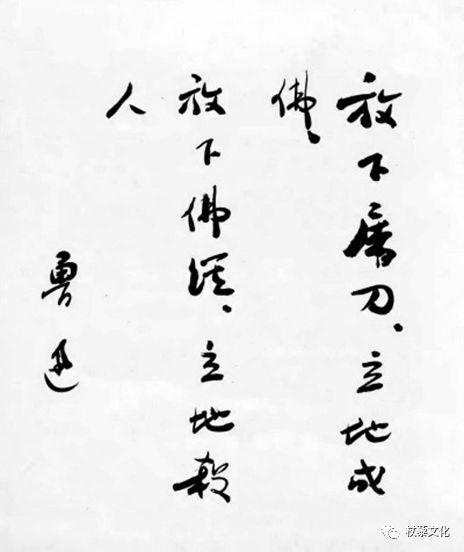 放下屠刀、立地成
佛、
放下佛经、立地杀
人
鲁迅
杖藜文化